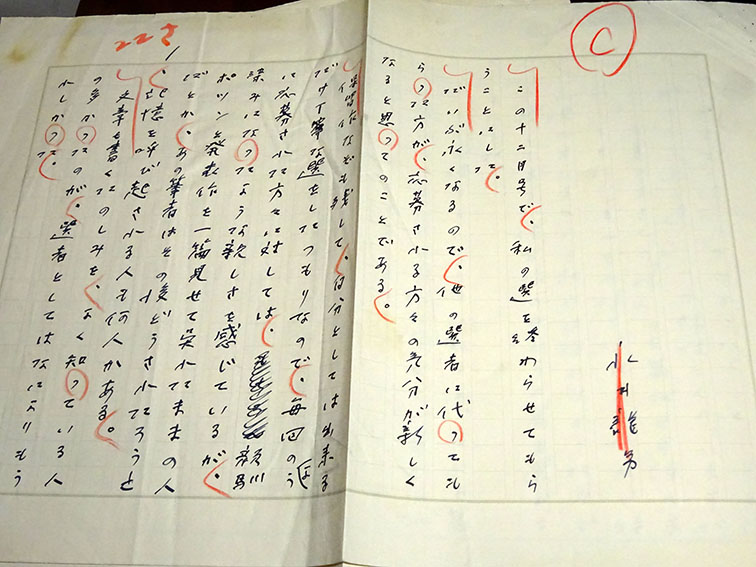 C
永井龍男
この十二月号で、私の選を終わらせてもら
うことにした。
だいぶ永くなるので、他の選者に代っても
らった方が、応募される方々の気分が新しく
なると思ってのことである。
保留作なども残して、自分としては出来る
だけ丁寧な選をしたつもりなので、毎回のよう
に応募された方々に対しては、顔馴
染みになったような親しさを感じているが、
ポツンと発表作を一篇見せて呉れたままの人
だとか、あの筆者はその後どうされたろうと
、記憶を呼び起される人も何人かある。
文章を書くたのしみを、よく知っている人
の多かったのが、選者としてはなによりもう
れしかった。